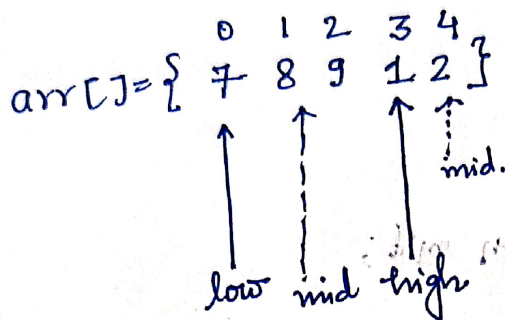 0 1 2 3 4
arr[]={ 7 8 9 1 2 }
mid.
low mid high